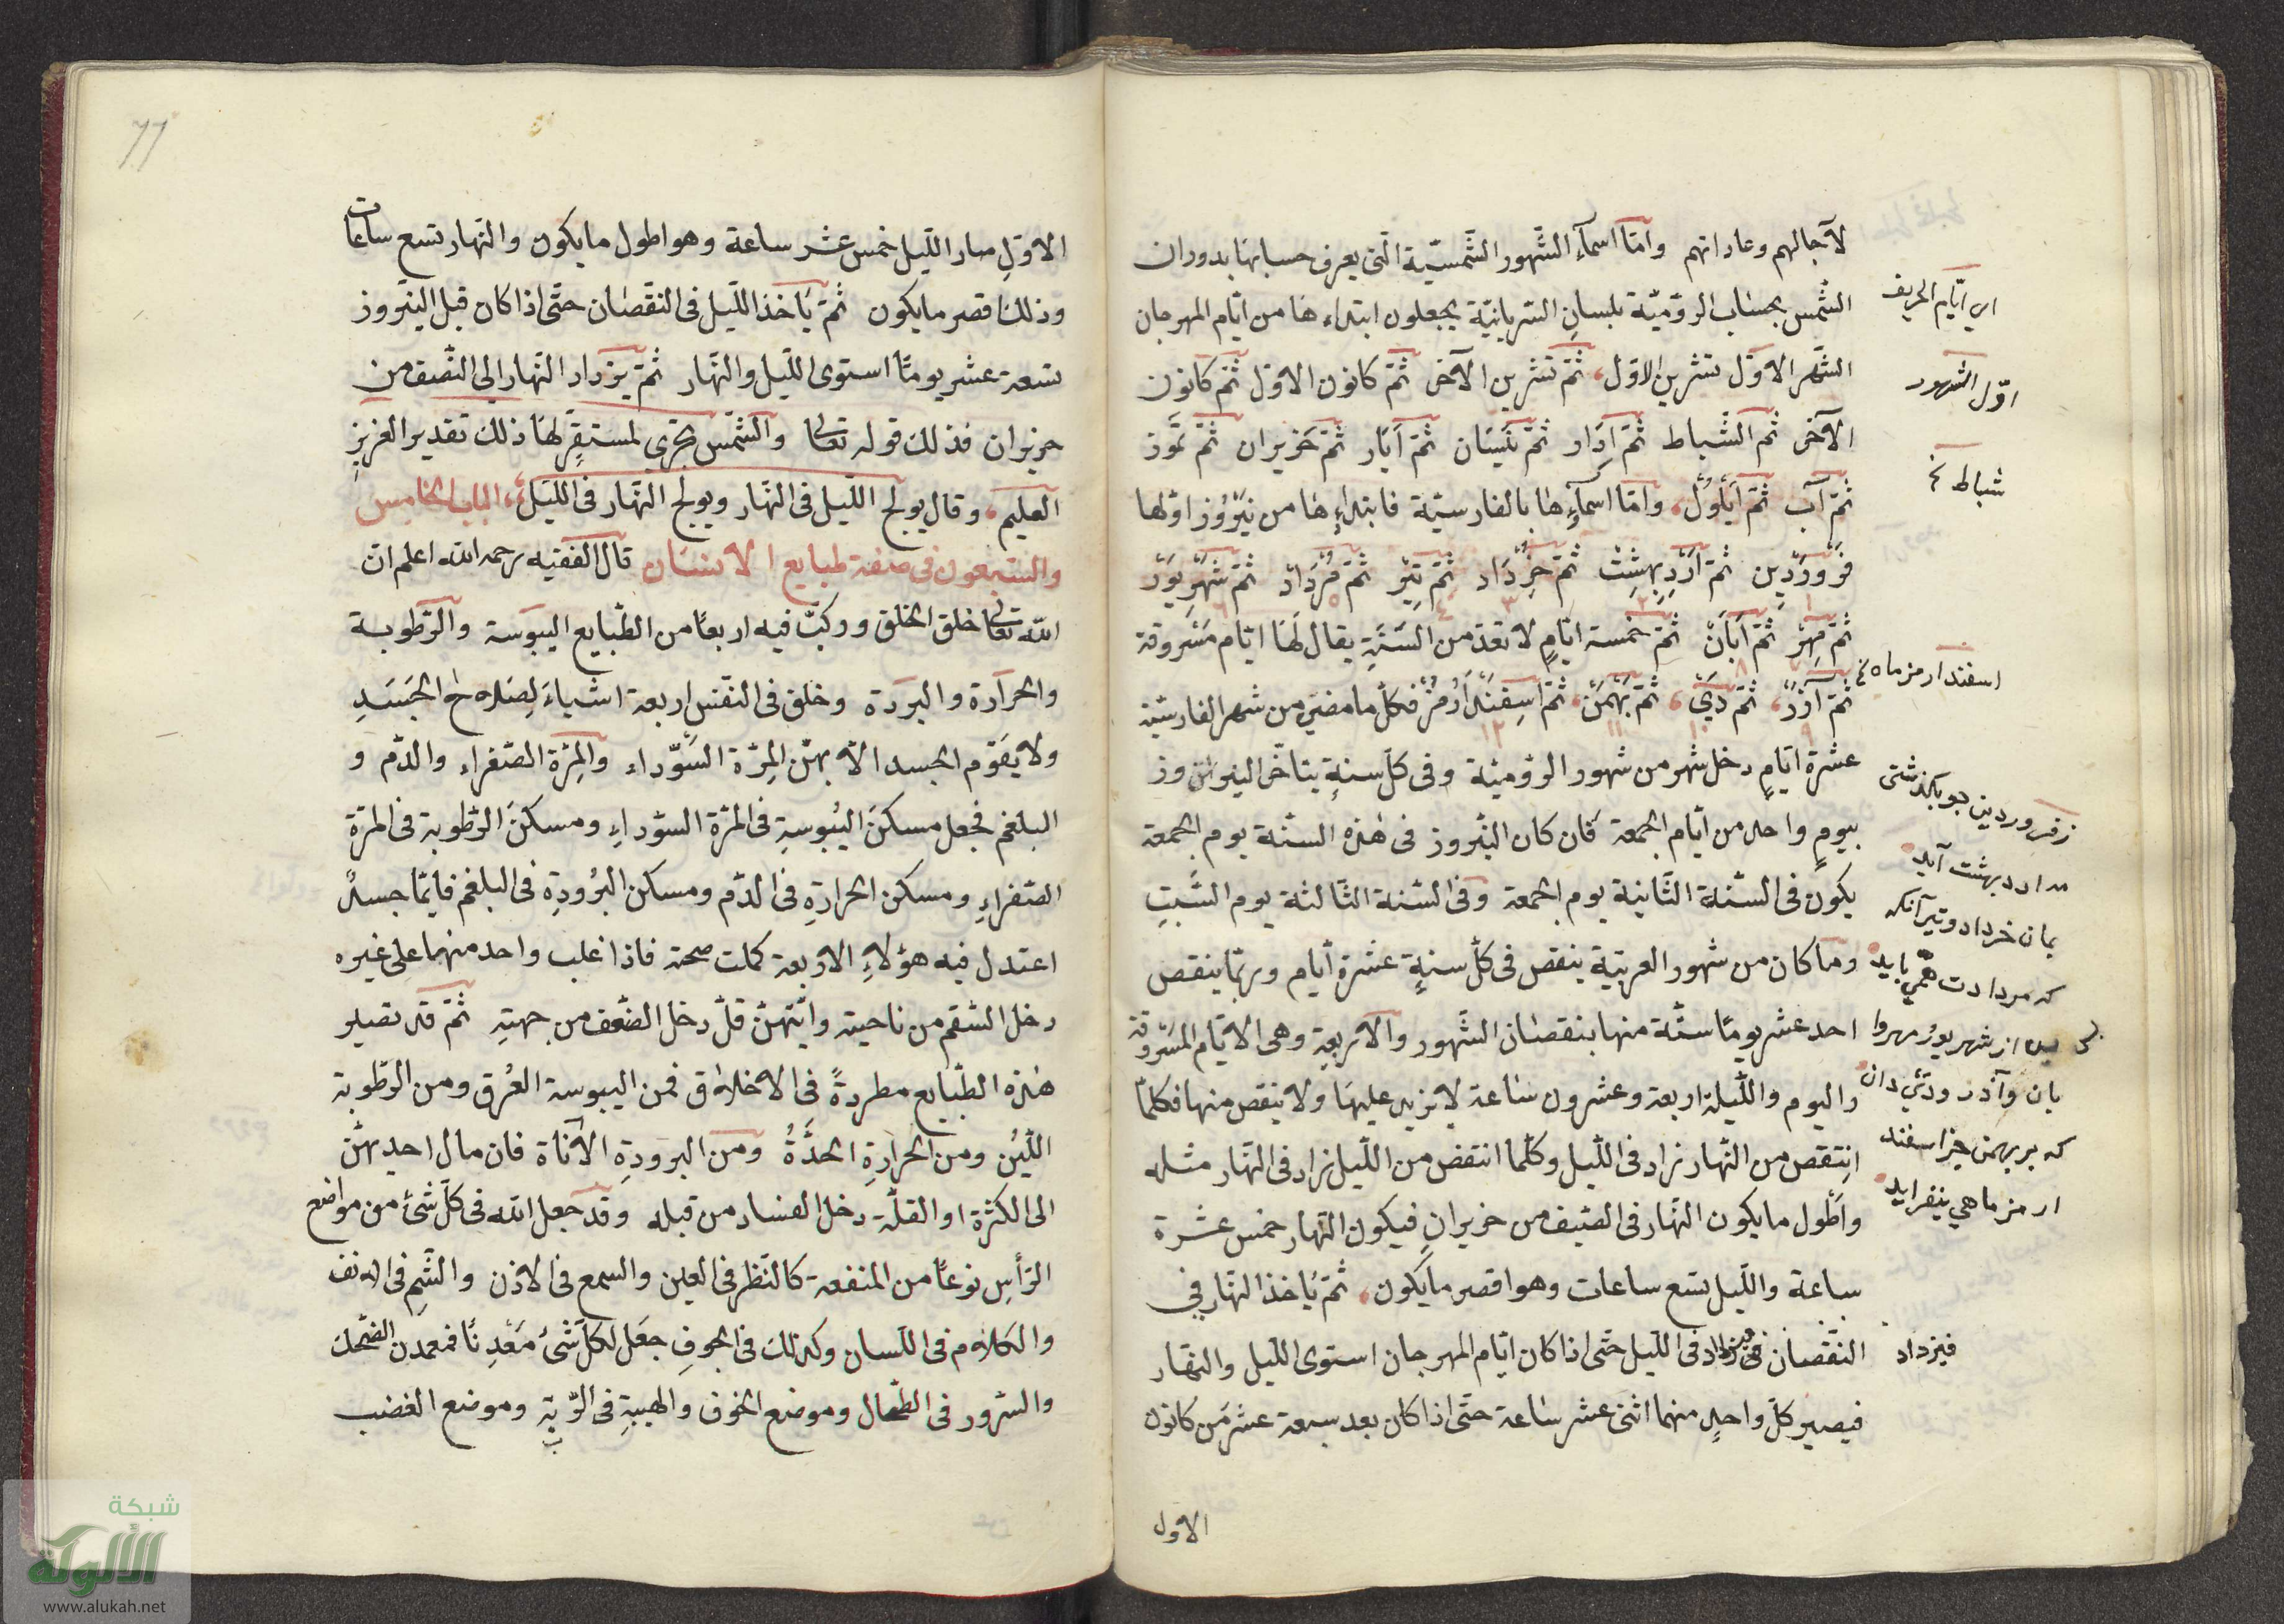 لآجالهم وعاداتهم وامّا اسمآء الشّهور الشّمسيّة الّتى يعرف حسابها بدوران
الشّمس بحساب الروميّة بلسان السّريانيّة يجعلون ابتداءها من ايّام المهرجان
الشّهر الاوّل تشرين الاوّل ثمّ تشرين الآخر ثمّ كانون الاوّل ثمّ كانون
الآخر ثم الشّباط ثمّ اَدَار ثمّ نَيْسَان ثمّ اَيَار ثمّ حَزيران ثمّ تمّوز
ثمّ آب ثمّ اَيْلُوْل وامّا اسمآءها بالفارسيّة فابتداءها من نَيْرُوْز اوّلها
فَرْوَرْدِين ثمّ اَرْدِبِهِشِتْ ثمّ خِرْدَاد ثمّ تِيْر ثمّ مُرْدَادْ ثمّ شَهْرِيوَر
ثمّ مِهِرْ ثمّ اَبَانْ ثمّ خمسة ايّامٍ لا تعدّ من السَّنَةِ يقال لَهَا ايّام مَسْروقة
ثمّ آذَرْ ثمّ دَيْ ثمّ بَهْمَنْ ثمّ اَسِفَنْدَارْمُزْ فكلّ ما مضى من شهر الفارسيّة
عشرة ايّامٍ دخل شهر من شهور الروميّة وفى كلّ سنةٍ يتاخّر النيروز
بيومٍ واحد من ايّام الجمعة فان كان النّيروز فى هذه السنّة يوم الجمعة
يكون فى السّنة الثّانية يوم الجمعة وفى السّنة الثّالثة يوم السَّبتِ
وما كان من شهور العربيّة ينقص فى كلّ سنةٍ عشرة ايّام وربّما ينقص
احد عشر يومًا ستّة منها بنقصان الشّهور والاربعة وهى الايّام المسروقة
واليوم واللّيلة اربعة وعشرون ساعة لا يزيد عليها ولا ينقص منها فكلّما
انتقص من النّهار زاد فى اللّيل وكلّما انتقص من اللّيل زاد فى النّهار مثله
واَطْول ما يكون النّهار فى الصّيف من حزيران فيكون النّهار خمس عشرة
ساعة واللّيل تسع ساعات وهو اقصر ما يكون ثمّ يُاخذ النّهار فى
النّقصان فى اللّيل حتّى اذا كان ايّام المهرجان استوى اللّيل والنّهار
فيصير كلّ واحدٍ منهما اثنى عشر ساعة حتّى اذا كان بعد سبعة عشر من كانون
الاول
اى ايّام الخريف
اوّل الشهور
شباط خ
اسفندارمز ماه خ
زفروردين چو بگذشتى
مه ارديبهشت آيد
بمان خرداد وتير آنكه
كه مردادت همى بايد
پس از شهريور مهر وا
بان وآذر ودى دان
كه بر بهمن جز اسفند
ارمز ماهى نيفزايد
فيزداد
77
الاوّل صار اللّيل خمس عشر ساعة وهو اطول ما يكون والنّهار تسع ساعات
وذلك اقصر ما يكون ثمّ يَاخذ اللّيل فى النّقصان حتّى اذا كان قبل النّيروز
تسعة عشر يومًا استوى اللّيل والنّهار ثمّ يزداد النّهار الى النّصف من
حزيران فذلك قوله تعالى والشّمس تجرى لمستقرّ لها ذلك تقدير العزيز
العليم وقال يولج اللّيل فى النّهار ويولج النّهار فى اللّيل الباب الخامس
والسّبعون فى صفة طبايع الانسان قال الفقيه رحمه الله اعلم انّ
الله تعالى خلق الخلق وركّب فيه اربعًا من الطّبايع اليبوسة والرّطوبة
والحرارة والبرودة وخلق فى النّفس اربعة اشياءَ لِصَلاح الجَسَدِ
ولا يقوّم الجسد الّا بهنّ المِرّة السّوداء والمِرّة الصّفراء والدّم و
البلغم فجعل مسكنَ اليُبوسةِ فى المرّة السوداءِ ومسكنَ الرّطوبة فى المرّة
الصّفراءِ ومسكن الحرارةِ فى الدّم ومسكن البُرودةِ فى البلغم فايّما جسدٍ
اعتدل فيه هؤلاءِ الاربعة كملت صحته فاذا غلب واحد منهما على غيره
دخل السّقم من ناحيته وايّتهنّ قلّ دخل الضّعف من جهتِهِ ثمّ قد تصير
هذه الطّبايع مطردةً فى الاخلاق فمن اليبوسة العُرق ومن الرّطوبة
اللّينُ ومن الحرارةِ الحدَّةُ ومن البرودةِ الاَناة فان مال احديهنّ
الى الكثرة او القلّة دخل الفساد من قبله وقد جعل الله فى كلّ شئ من مواضع
الرّأسِ نوعًا من المنفعة كالنّظر فى العين والسمع فى الاذن والشّمِ فى الانف
والكلام فى اللّسان وكذلك فى الجوفِ جعَل لكلّ شئ مَعْدِنًا فمعدن الضّحك
والسّرور فى الطّحال وموضع الخوف والهيبةِ فى الرّية وموضع الغضب
شبكة
الألوكة
www.alukah.net